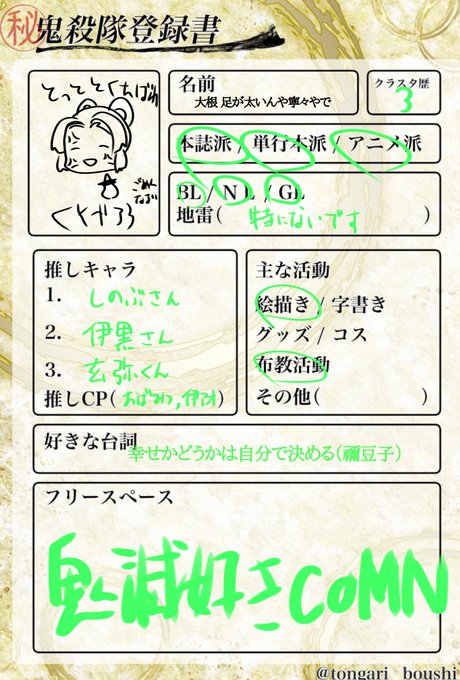 ㊙鬼殺隊登録書
名前
大根 足が太いんや寧々やで
クラスタ歴
3
本誌派 / 単行本派 / アニメ派
BL / NL / GL
地雷( 特にないです )
推しキャラ
1. しのぶさん
2. 伊黒さん
3. 玄弥くん
推しCP( おばみつ, )
主な活動
絵描き / 字書き
グッズ / コス
布教活動
その他( )
好きな台詞
幸せかどうかは自分で決める(禰豆子)
フリースペース
鬼滅好きこCOMN
@tongari_boushi